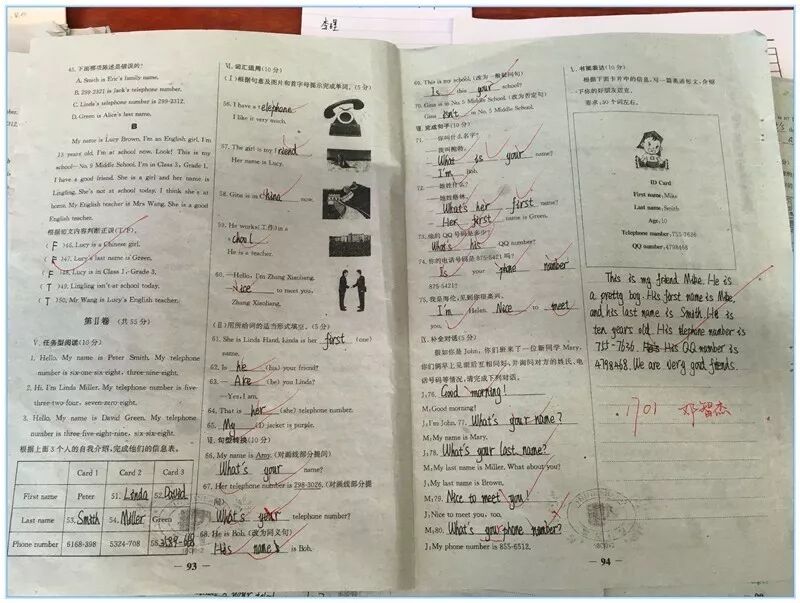 李煜
45. 下面哪项陈述是错误的?
A. Smith is Eric's family name.
B. 299-2321 is Jack's telephone number.
C. Linda's telephone number is 299-2312.
D. Green is Alice's last name.
B
My name is Lucy Brown. I'm an English girl. I'm
13 years old. I'm at school now. Look! This is my
school—No. 9 Middle School. I'm in Class 3, Grade 1.
I have a good friend. She is a girl and her name is
Lingling. She's not at school today. I think she's at
home. My English teacher is Mrs Wang. She is a good
English teacher.
根据短文内容判断正误(T/F)。
( F )46. Lucy is a Chinese girl.
( F )47. Lucy's last name is Green.
( F )48. Lucy is in Class 1, Grade 3.
( T )49. Lingling isn't at school today.
( T )50. Mr Wang is Lucy's English teacher.
第Ⅱ卷 (共55分)
Ⅴ. 任务型阅读(10分)
1. Hello, My name is Peter Smith. My telephone
number is six-one-six-eight, three-nine-eight.
2. Hi, I'm Linda Miller. My telephone number is five-
three-two-four, seven-zero-eight.
3. Hello, My name is David Green. My telephone
number is three-five-eight-nine, six-six-eight.
根据上面3个人的自我介绍,完成他们的信息表。
Card 1 Card 2 Card 3
First name Peter 51. Linda 52. David
Last name 53. Smith 54. Miller Green
Phone number 6168-398 5324-708 55. 3589-668
93
Ⅵ. 词汇运用(10分)
(Ⅰ)根据句意及图片和首字母提示完成单词。(5分)
56. I have a telephone
I like it very much.
57. The girl is my friend
Her name is Lucy.
58. Gina is in China now.
59. He works(工作) in a
school
He is a teacher.
60. —Hello! I'm Zhang Xiaoliang.
—Nice to meet you,
Zhang Xiaoliang.
(Ⅱ)用所给词的适当形式填空。(5分)
61. She is Linda Hand, Linda is her first (one)
name.
62. Is he (his) your friend?
63. —Are (be) you Linda?
—Yes, I am.
64. That is her (she) telephone number.
65. My (I) jacket is purple.
Ⅶ. 句型转换(10分)
66. My name is Amy. (对画线部分提问)
What's your name?
67. Her telephone number is 298-3026. (对画线部分提
问)
What's your telephone number?
68. He is Bob. (改为同义句)
His name is is Bob.
69. This is my school. (改为一般疑问句)
Is this your school?
70. Gina is in No. 5 Middle School. (改为否定句)
Gina isn't in No. 5 Middle School.
Ⅷ. 完成句子(10分)
71. ——你叫什么名字?
——我叫鲍勃。
—What is your name?
—I'm Bob.
72. ——她姓什么?
——她姓格林。
—What's her first name?
—Her first name is Green.
73. 他的QQ号码是多少?
What's his QQ number?
74. 你的电话号码是875-6421吗?
Is your phone number
875-6421?
75. 我是海伦,见到你很高兴。
I'm Helen. Nice to meet
you.
Ⅸ. 补全对话(10分)
假如你是John,你们班来了一位新同学Mary,
你们俩早上见面后互相问好,并询问对方的姓氏、电
话号码等情况,请完成下列对话。
J:76. Good morning!
M:Good morning!
J:I'm John. 77. What's your name?
M:My name is Mary.
J:78. What's your last name?
M:My last name is Miller. What about you?
J:My last name is Brown.
M:79. Nice to meet you!
J:Nice to meet you, too.
M:80. What's your phone number?
J:My phone number is 855-6512.
94
Ⅹ. 书面表达(10分)
根据下面卡片中的信息,写一篇英语短文,介绍
一下你的好朋友迈克。
要求:50个词左右。
ID Card
First name: Mike
Last name: Smith
Age: 10
Telephone number: 755-7626
QQ number: 4798468
This is my friend Mike. He is
a pretty boy. His first name is Mike,
and his last name is Smith. He is
ten years old. His telephone number is
755-7626. His QQ number is
4798468. We are very good friends.
1701 邓智杰